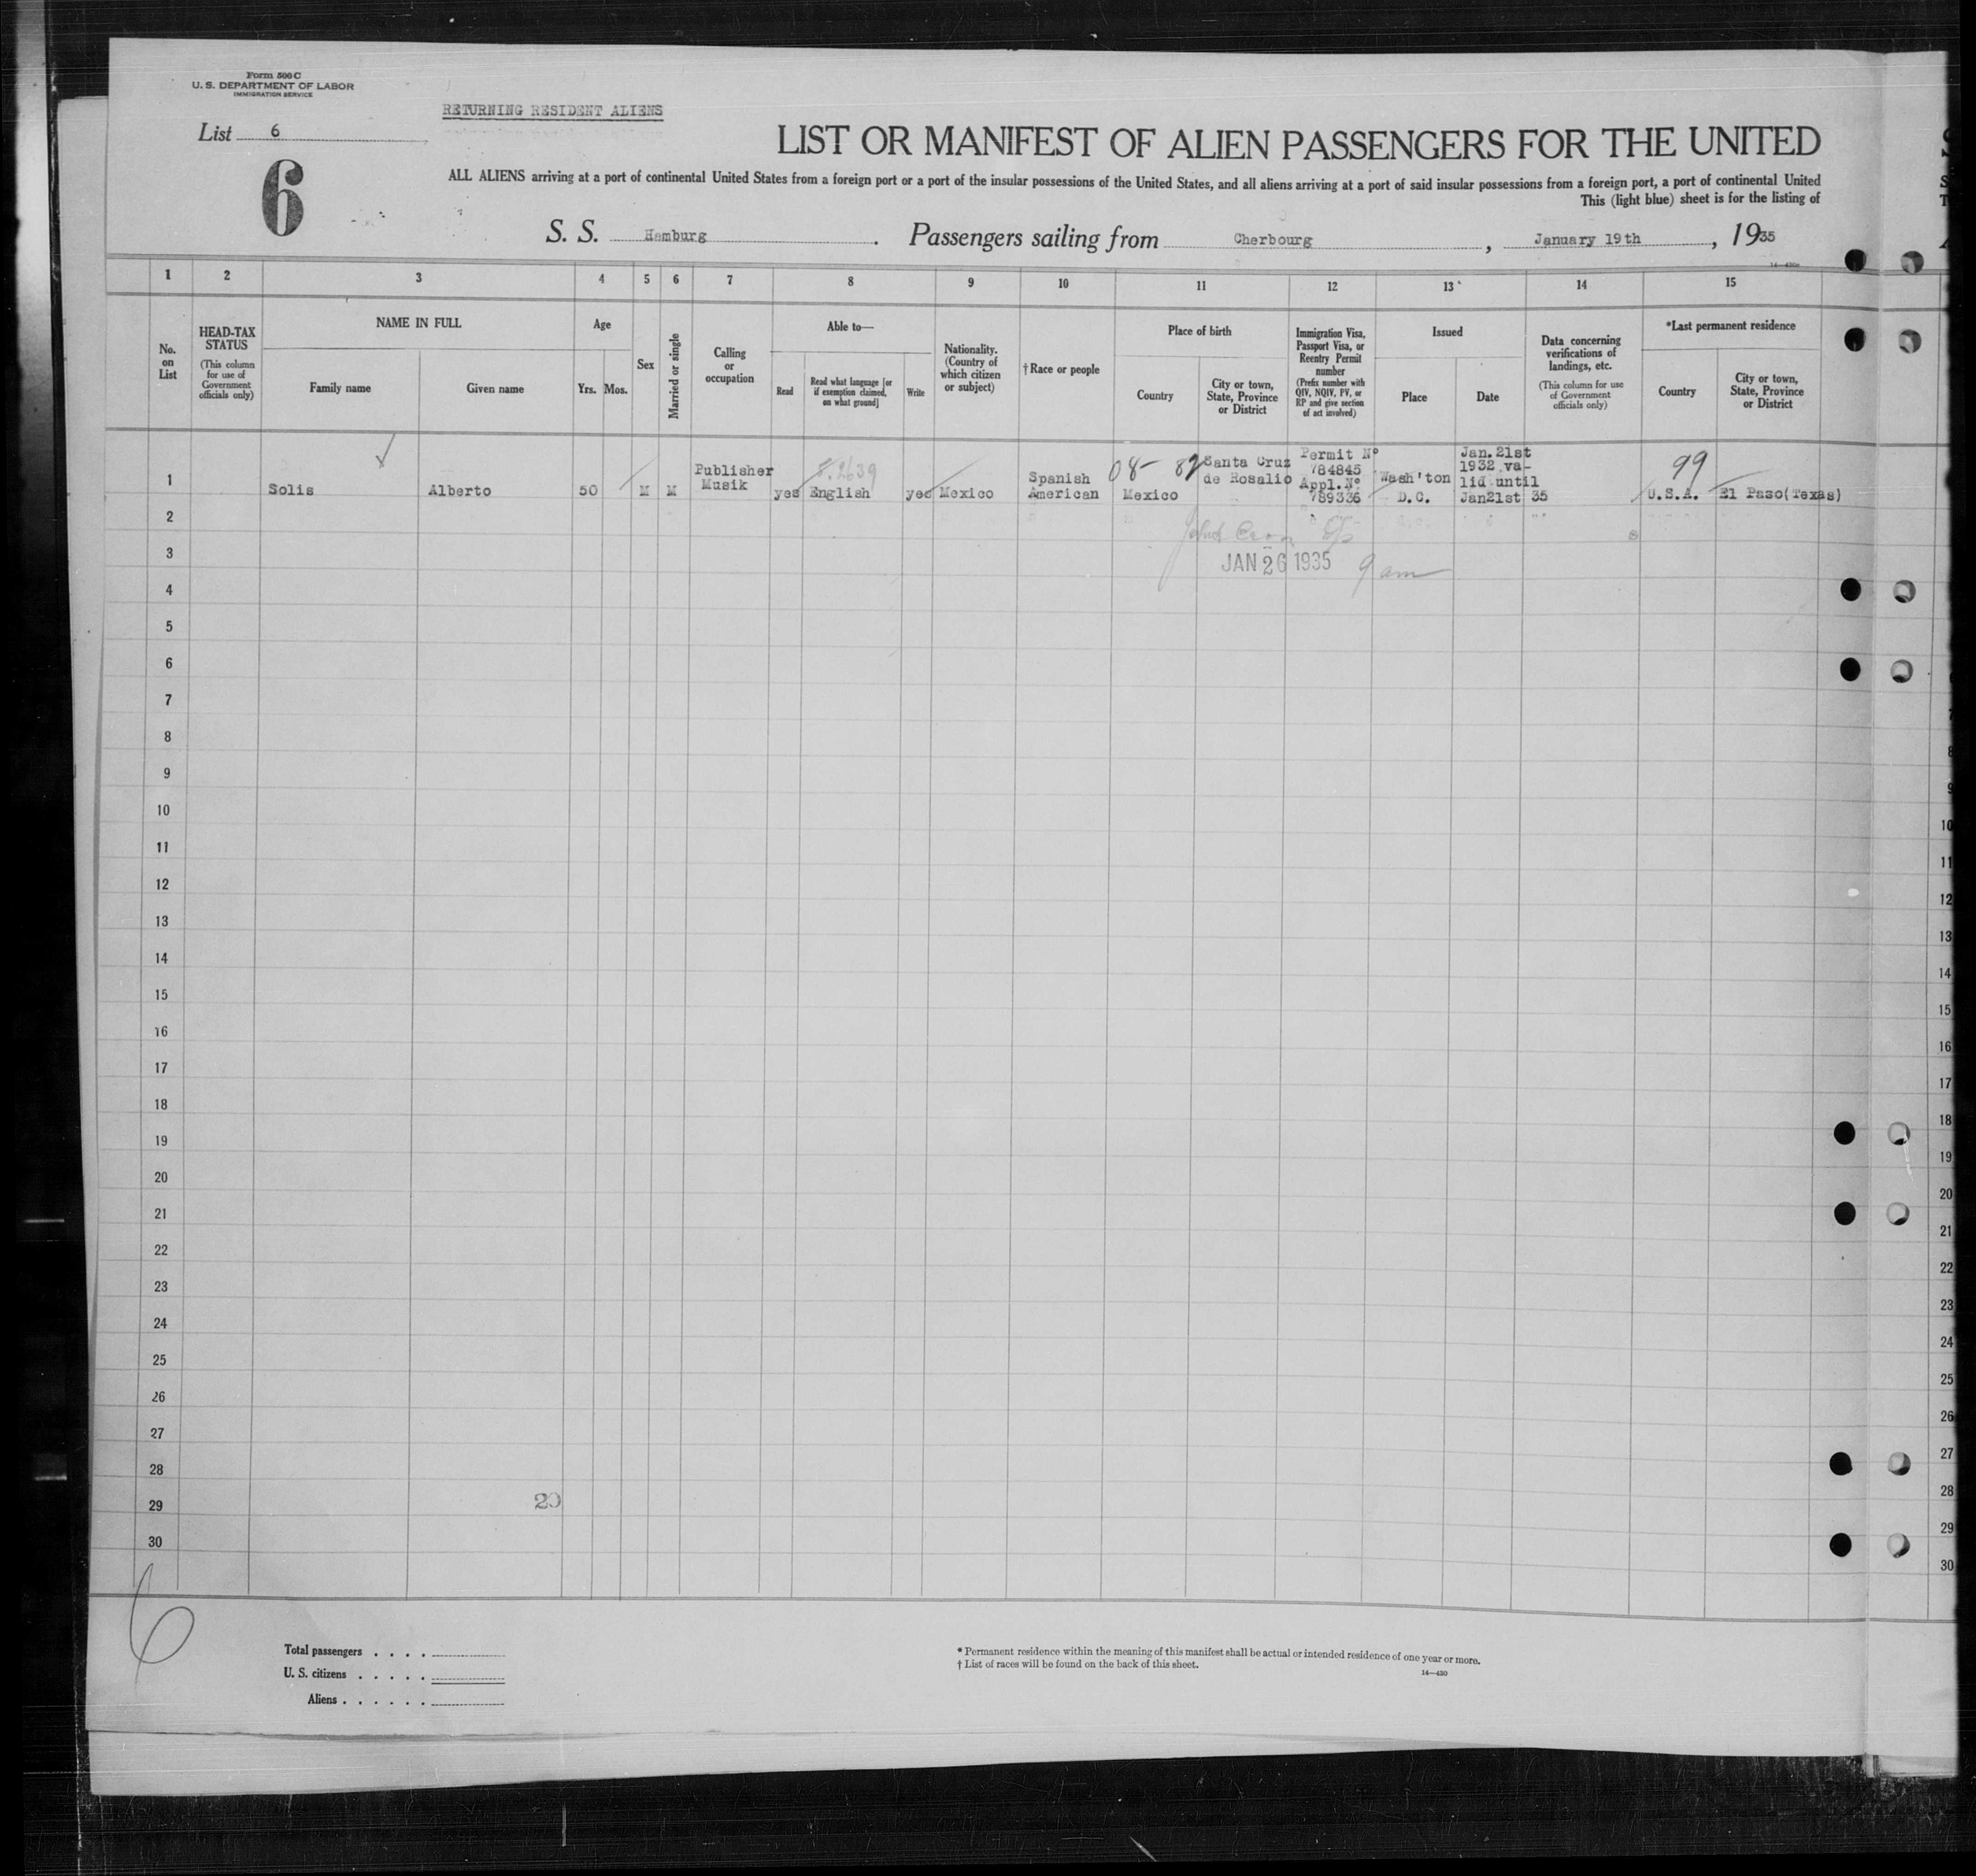 Form 500 C
U. S. DEPARTMENT OF LABOR
IMMIGRATION SERVICE
RETURNING RESIDENT ALIENS
List 6
6
LIST OR MANIFEST OF ALIEN PASSENGERS FOR THE UNITED
ALL ALIENS arriving at a port of continental United States from a foreign port or a port of the insular possessions of the United States, and all aliens arriving at a port of said insular possessions from a foreign port, a port of continental United
This (light blue) sheet is for the listing of
S. S. Hamburg. Passengers sailing from Cherbourg, January 19th, 1935
1 2 3 4 5 6 7 8 9 10 11 12 13 14 15
No. on List
HEAD-TAX STATUS
(This column for use of Government officials only)
NAME IN FULL
Family name
Given name
Age
Yrs. Mos.
Sex
Married or single
Calling or occupation
Able to—
Read
Read what language [or if exemption claimed, on what ground]
Write
Nationality. (Country of which citizen or subject)
† Race or people
Place of birth
Country
City or town, State, Province or District
Immigration Visa, Passport Visa, or Reentry Permit number
(Prefix number with QIV, NQIV, PV, or RP and give section of act involved)
Issued
Place
Date
Data concerning verifications of landings, etc.
(This column for use of Government officials only)
*Last permanent residence
Country
City or town, State, Province or District
1
Solis
Alberto
50
M
M
Publisher
Musik
yes
English
yes
Mexico
Spanish
American
08- 82
Mexico
Santa Cruz
de Rosalio
Permit Nº
784845
Appl. Nº
789336
Wash'ton
D.C.
Jan. 21st
1932 va-
lid until
Jan21st 35
99
U.S.A.
El Paso(Texas)
2
3
JAN 26 1935 9 am
4
5
6
7
8
9
10
11
12
13
14
15
16
17
18
19
20
21
22
23
24
25
26
27
28
29
30
6
Total passengers . . . .
U. S. citizens . . . . .
Aliens . . . . . .
* Permanent residence within the meaning of this manifest shall be actual or intended residence of one year or more.
† List of races will be found on the back of this sheet.
14—430
8
9
10
11
12
13
14
15
16
17
18
19
20
21
22
23
24
25
26
27
28
29
30